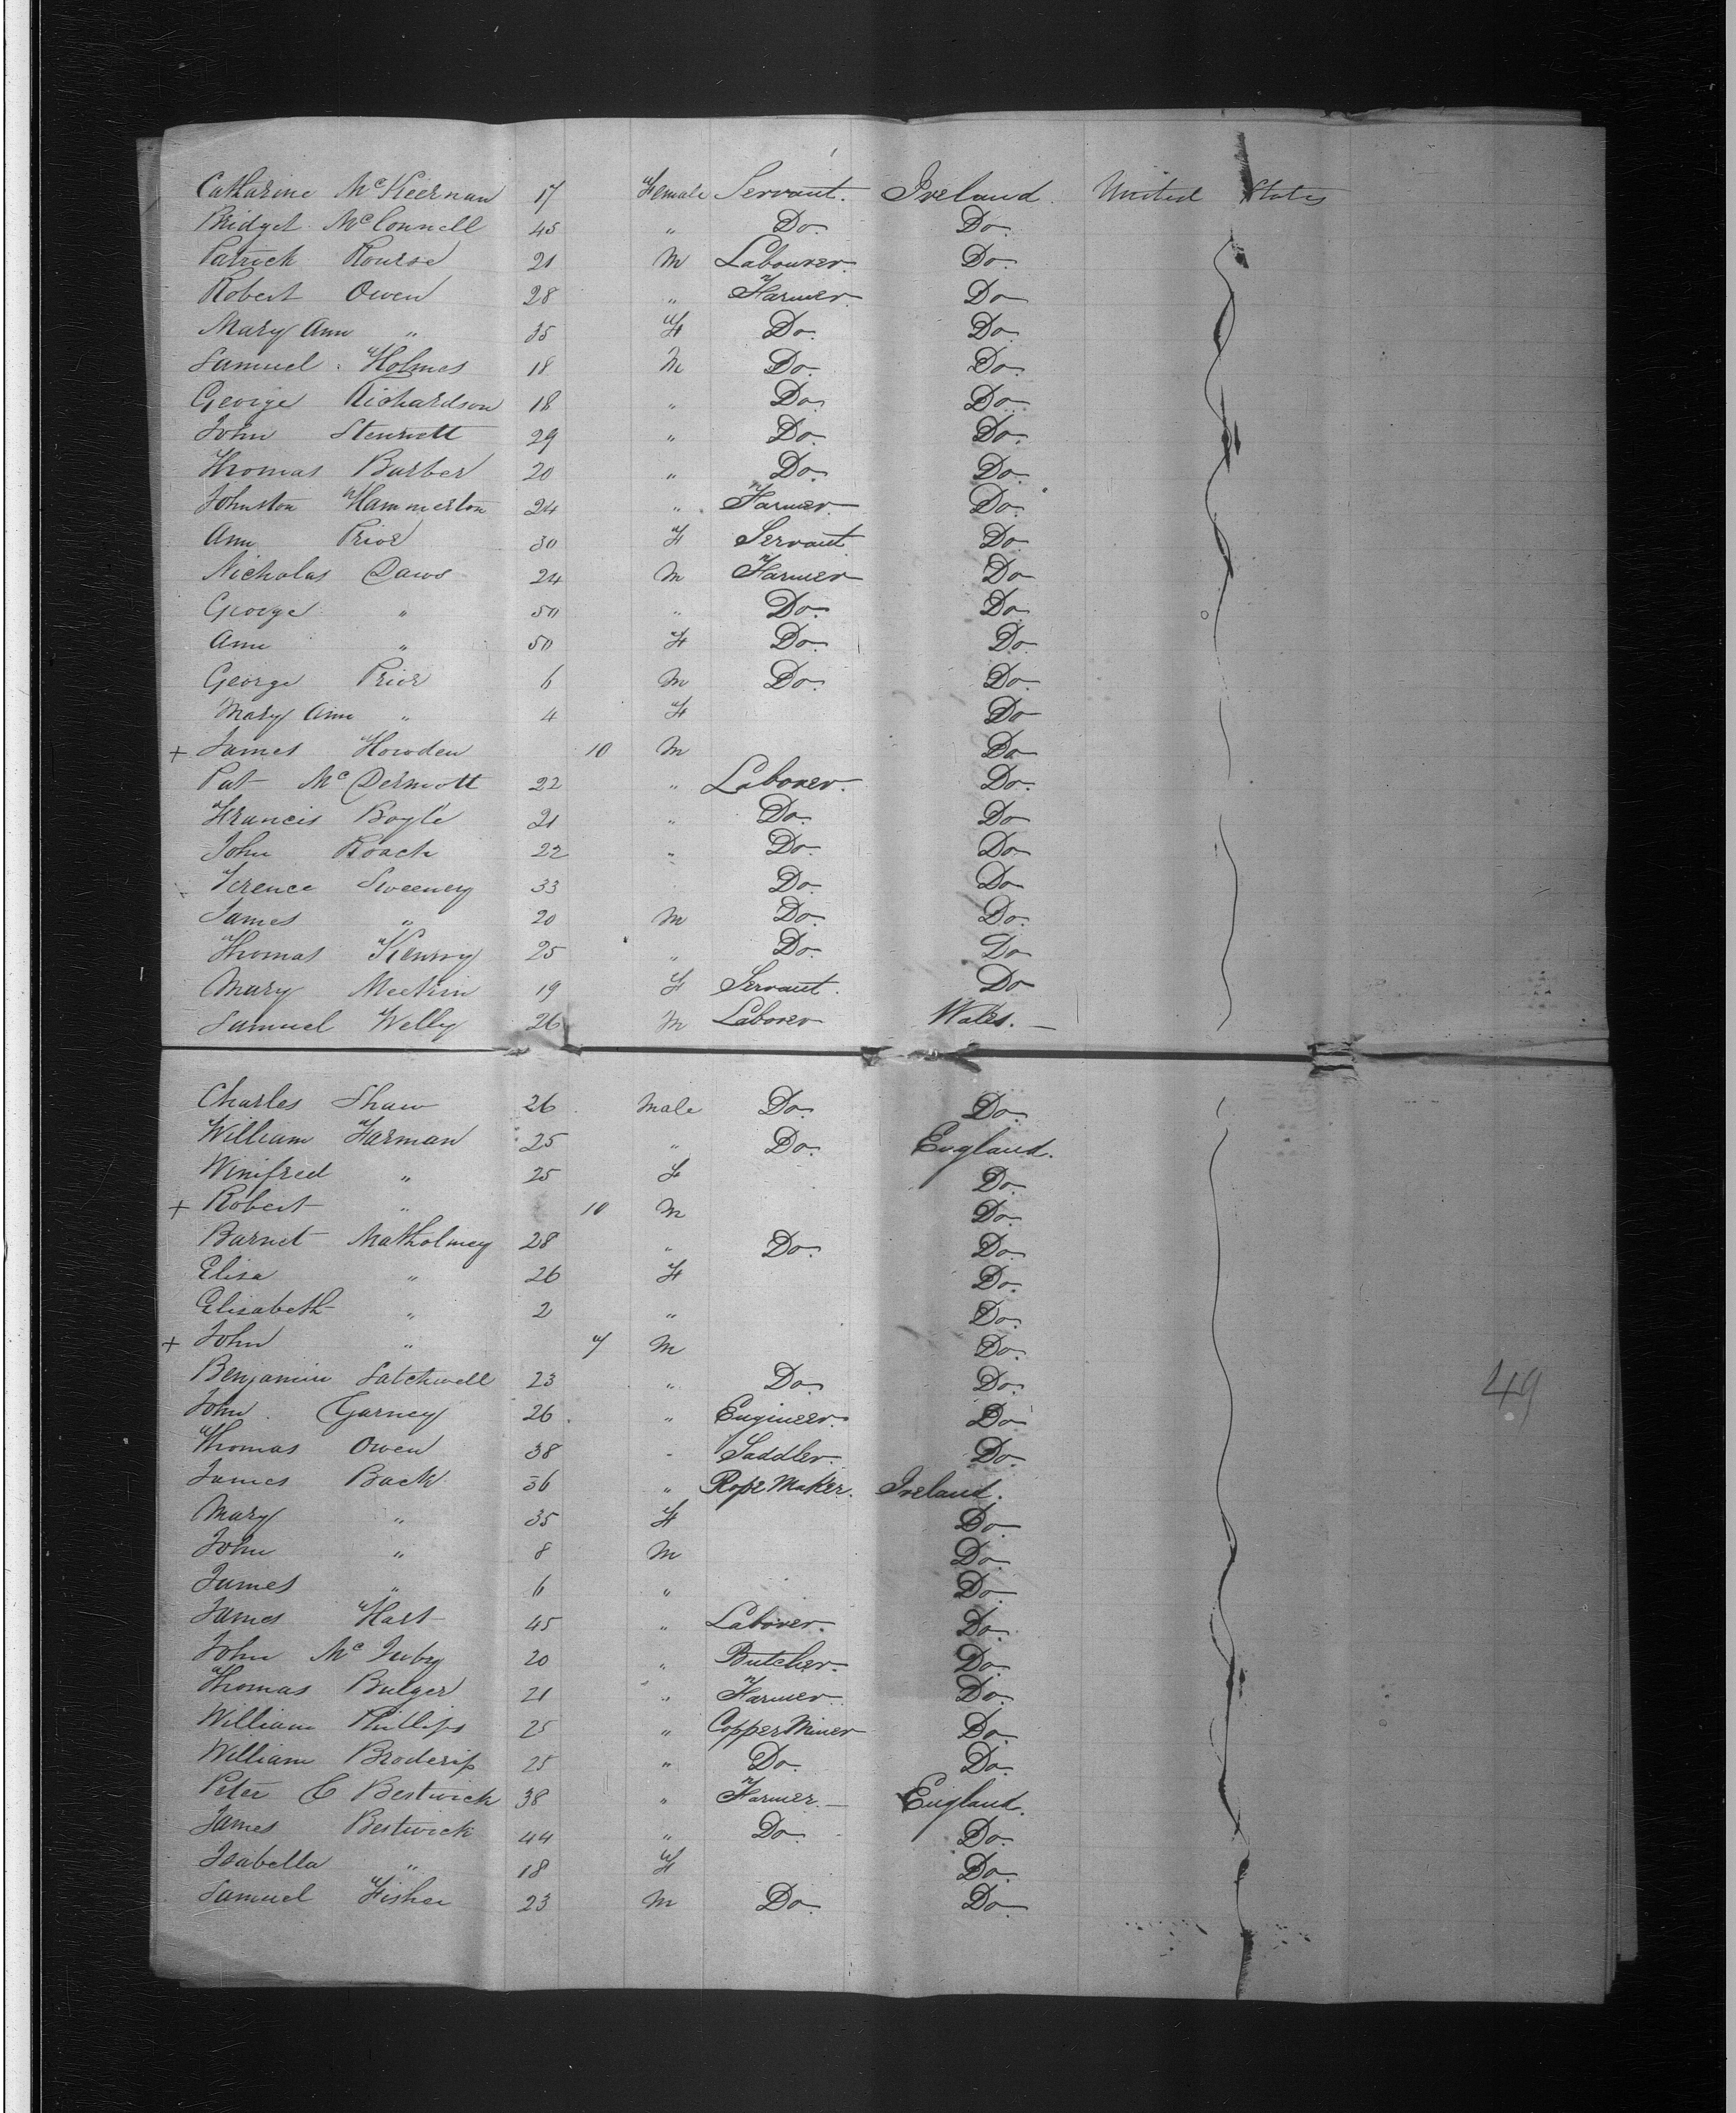 Catharine McKeernan 17 Female Servant. Ireland. United States
Bridget McConnell 45 " Do. Do.
Patrick Rourse 21 M Labourer. Do.
Robert Owen 28 " Farmer. Do
Mary Ann " 35 F Do. Do.
Samuel Holmes 18 M Do. Do.
George Richardson 18 " Do. Do.
John Stennett 29 " Do. Do.
Thomas Barber 20 " Do. Do.
Johnston Hammerton 24 " Farmer. Do.
Ann Prior 30 F Servant Do
Nicholas Daws 24 M Farmer Do
George " 50 " Do. Do.
Ann " 50 F Do. Do.
George Prior 6 M Do. Do.
Mary Ann " 4 F Do
+ James Howden 10 M Do
Pat McDermott 22 " Laborer. Do.
Francis Boyle 21 " Do. Do
John Roach 22 " Do. Do
Terence Sweeney 33 Do. Do
James " 20 M Do. Do.
Thomas Kenny 25 " Do. Do
Mary Meehin 19 F Servant. Do
Samuel Welly 26 M Laborer Wales.
Charles Shaw 26 Male Do. Do.
William Farman 25 " Do. England.
Winifred " 25 F Do.
+ Robert " 10 M Do.
Barnet 28 " Do. Do.
Elisa " 26 F Do.
Elisabeth " 2 " Do.
+ John " 7 M Do.
Benjamin Satchwell 23 " Do. Do.
49
John Garney 26 " Engineer. Do
Thomas Owen 38 - Saddler. Do.
James Back 36 " Rope Maker. Ireland.
Mary " 35 F Do.
John " 8 M Do.
James " 6 " Do.
James Hart 45 " Laborer. Do.
John Mc 20 " Butcher. Do.
Thomas Bulger 21 " Farmer. Do.
William Phillips 25 " Copper Miner Do.
William Broderip 25 " Do. Do.
Peter C Bestwick 38 " Farmer. England.
James Bestwick 44 " Do. Do.
Isabella " 18 F Do.
Samuel Fisher 23 M Do. Do